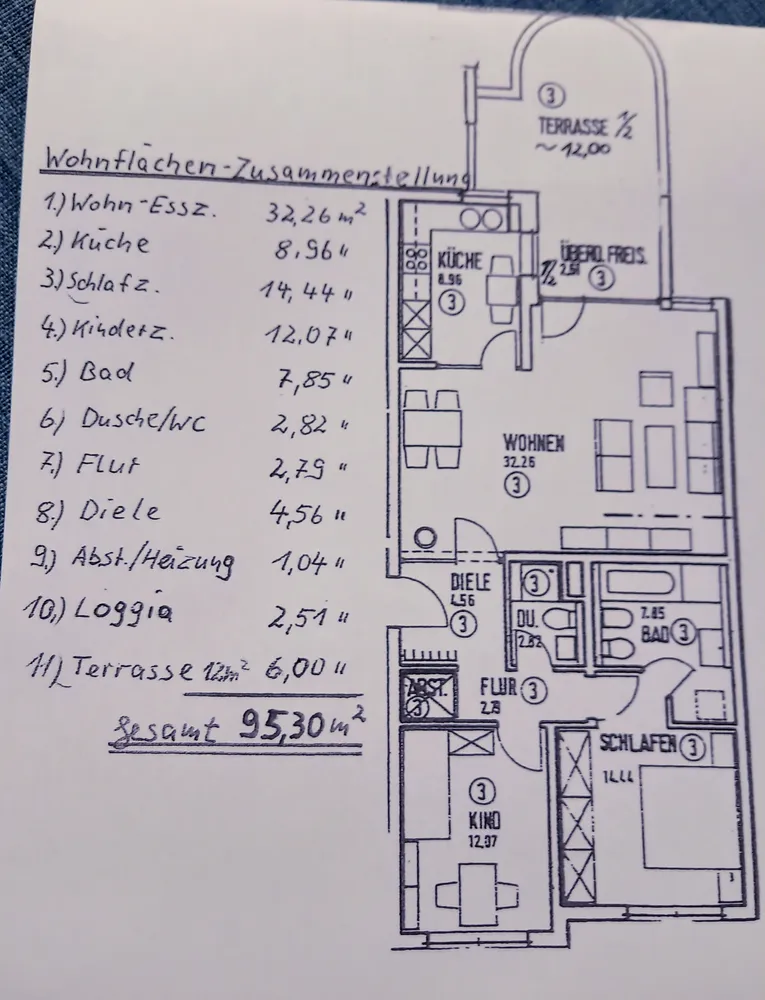 Wohnflächen-Zusammenstellung
1.) Wohn-Essz. 32,26 m²
2.) Küche 8,96 "
3.) Schlafz. 14,44 "
4.) Kinderz. 12,07 "
5.) Bad 7,85 "
6.) Dusche/WC 2,82 "
7.) Flur 2,79 "
8.) Diele 4,56 "
9.) Abst./Heizung 1,04 "
10.) Loggia 2,51 "
11.) Terrasse 12m² 6,00 "
gesamt 95,30 m²
3
TERRASSE 1/2
~ 12,00
KÜCHE
8.96
3
ÜBERD. FREIS.
1/2 2,51
3
WOHNEN
32.26
3
DIELE
4.56
3
3
DU.
2.82
7.85
BAD 3
ABST.
3
FLUR 3
2.79
SCHLAFEN 3
14.44
3
KIND
12.07